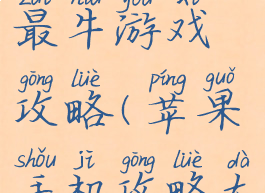 zuì niú yóu xì
最牛游戏
gōng lüè ( píng guǒ
攻略(苹果
shǒu jī gōng lüè dà
手机攻略大